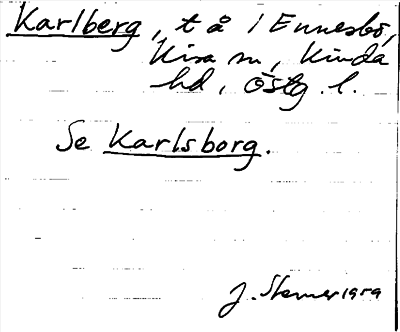 Karlberg, t å i Ennesbo,
Kisa sn, Kinda
hd, Östg. l.
Se Karlsborg.
J. Stemer 1959